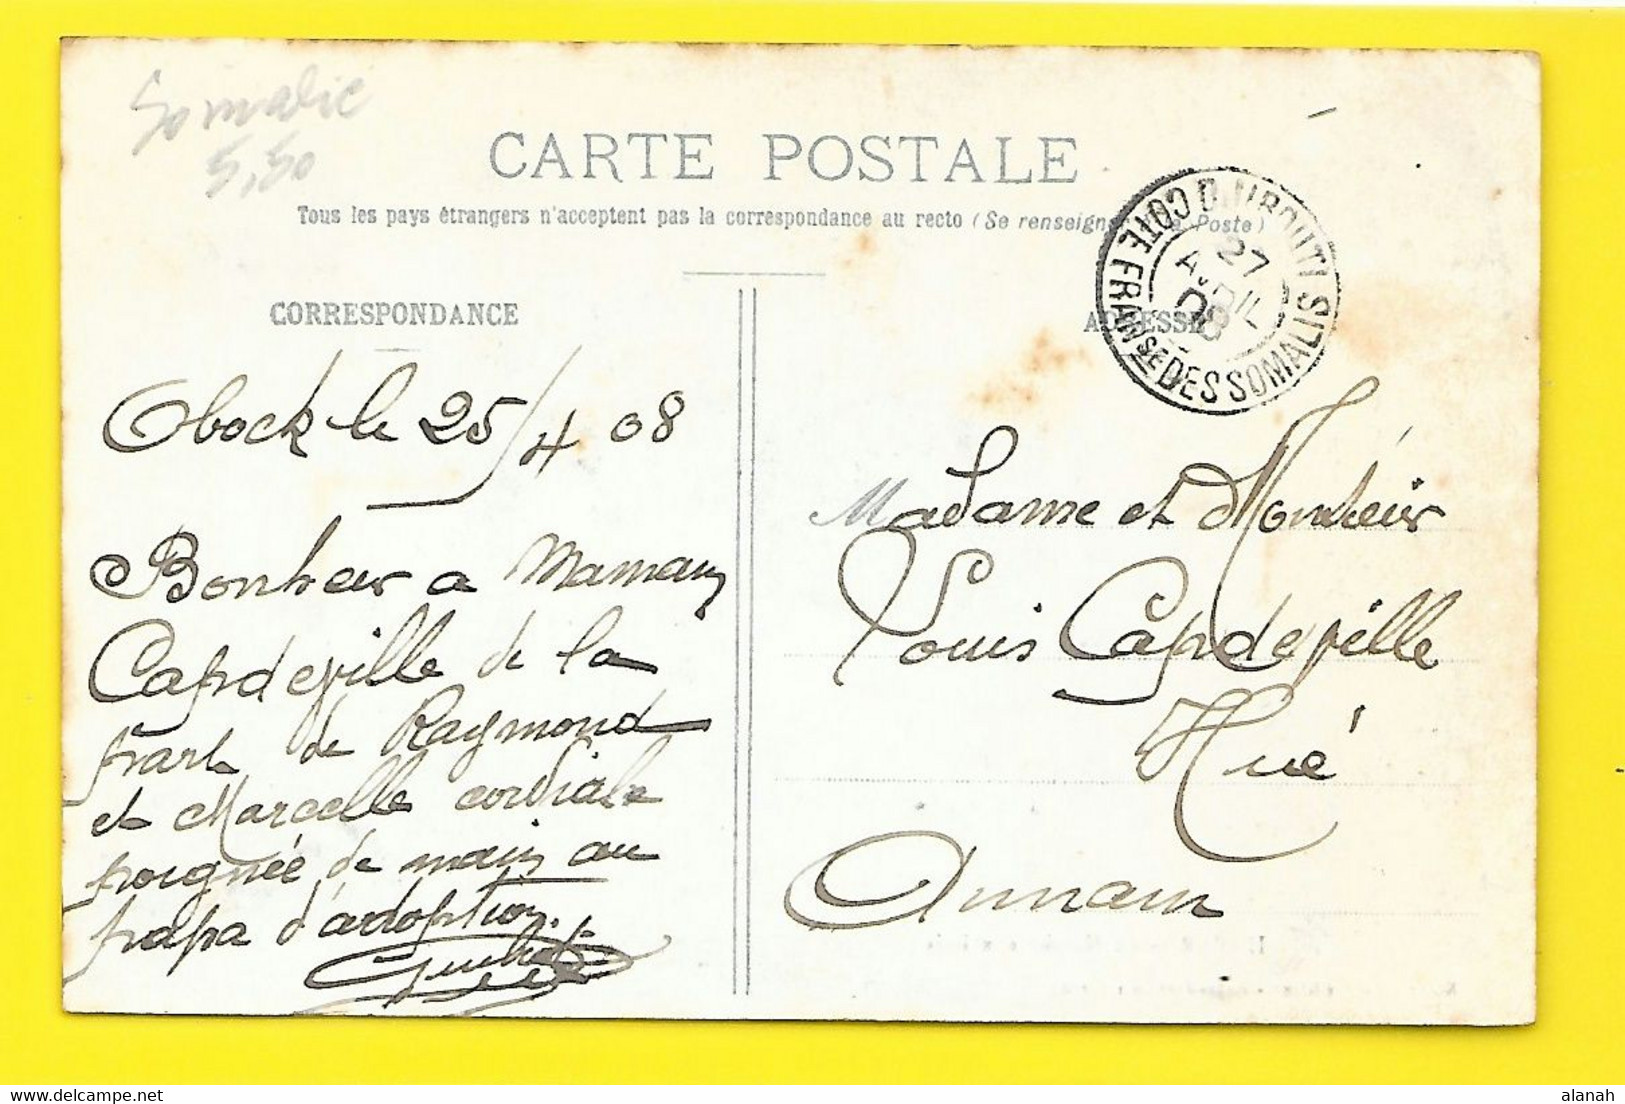 Somalie
5,50
CARTE POSTALE
Tous les pays étrangers n'acceptent pas la correspondance au recto (Se renseigner à la Poste)
DJIBOUTI COTE FRANSE DES SOMALIS
27
AVRIL
08
CORRESPONDANCE
ADRESSE
Obock le 25/4 08
Bonheur a Maman
Capdeville de la
part de Raymond
et Marcelle cordiale
poignée de main au
papa d'adoption.
Madame et Monsieur
Louis Capdeville
Hué
Annam
alanah